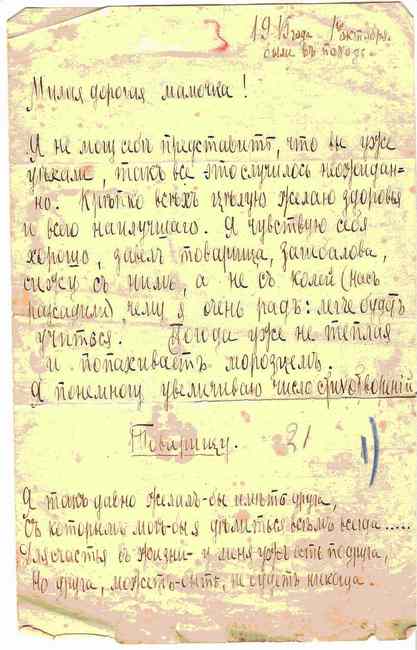 3
1915 года 1 октября.
были въ походѣ.
Милая дорогая мамочка!
Я не могу себѣ представить, что вы уже
уѣхали, такъ все это случилось неожидан=
но. Крѣпко всѣхъ цѣлую желаю здоровья
и всего наилучшаго. Я чувствую себя
хорошо, завелъ товарища,
сижу съ нимъ, а не съ Колей (насъ
разсадили), чему я очень радъ: легче будетъ
учиться. Погода уже не теплая
и попахиваетъ морозцемъ.
Я понемногу увеличиваю число стихотвореній.
Товарищу. 21
1)
Я такъ давно желалъ-бы имѣть друга,
Съ которымъ могъ-бы я дѣлиться всѣмъ всегда.....
Для счастья въ жизни-у меня ужъ есть подруга,
Но друга, можетъ-быть, не будетъ никогда.